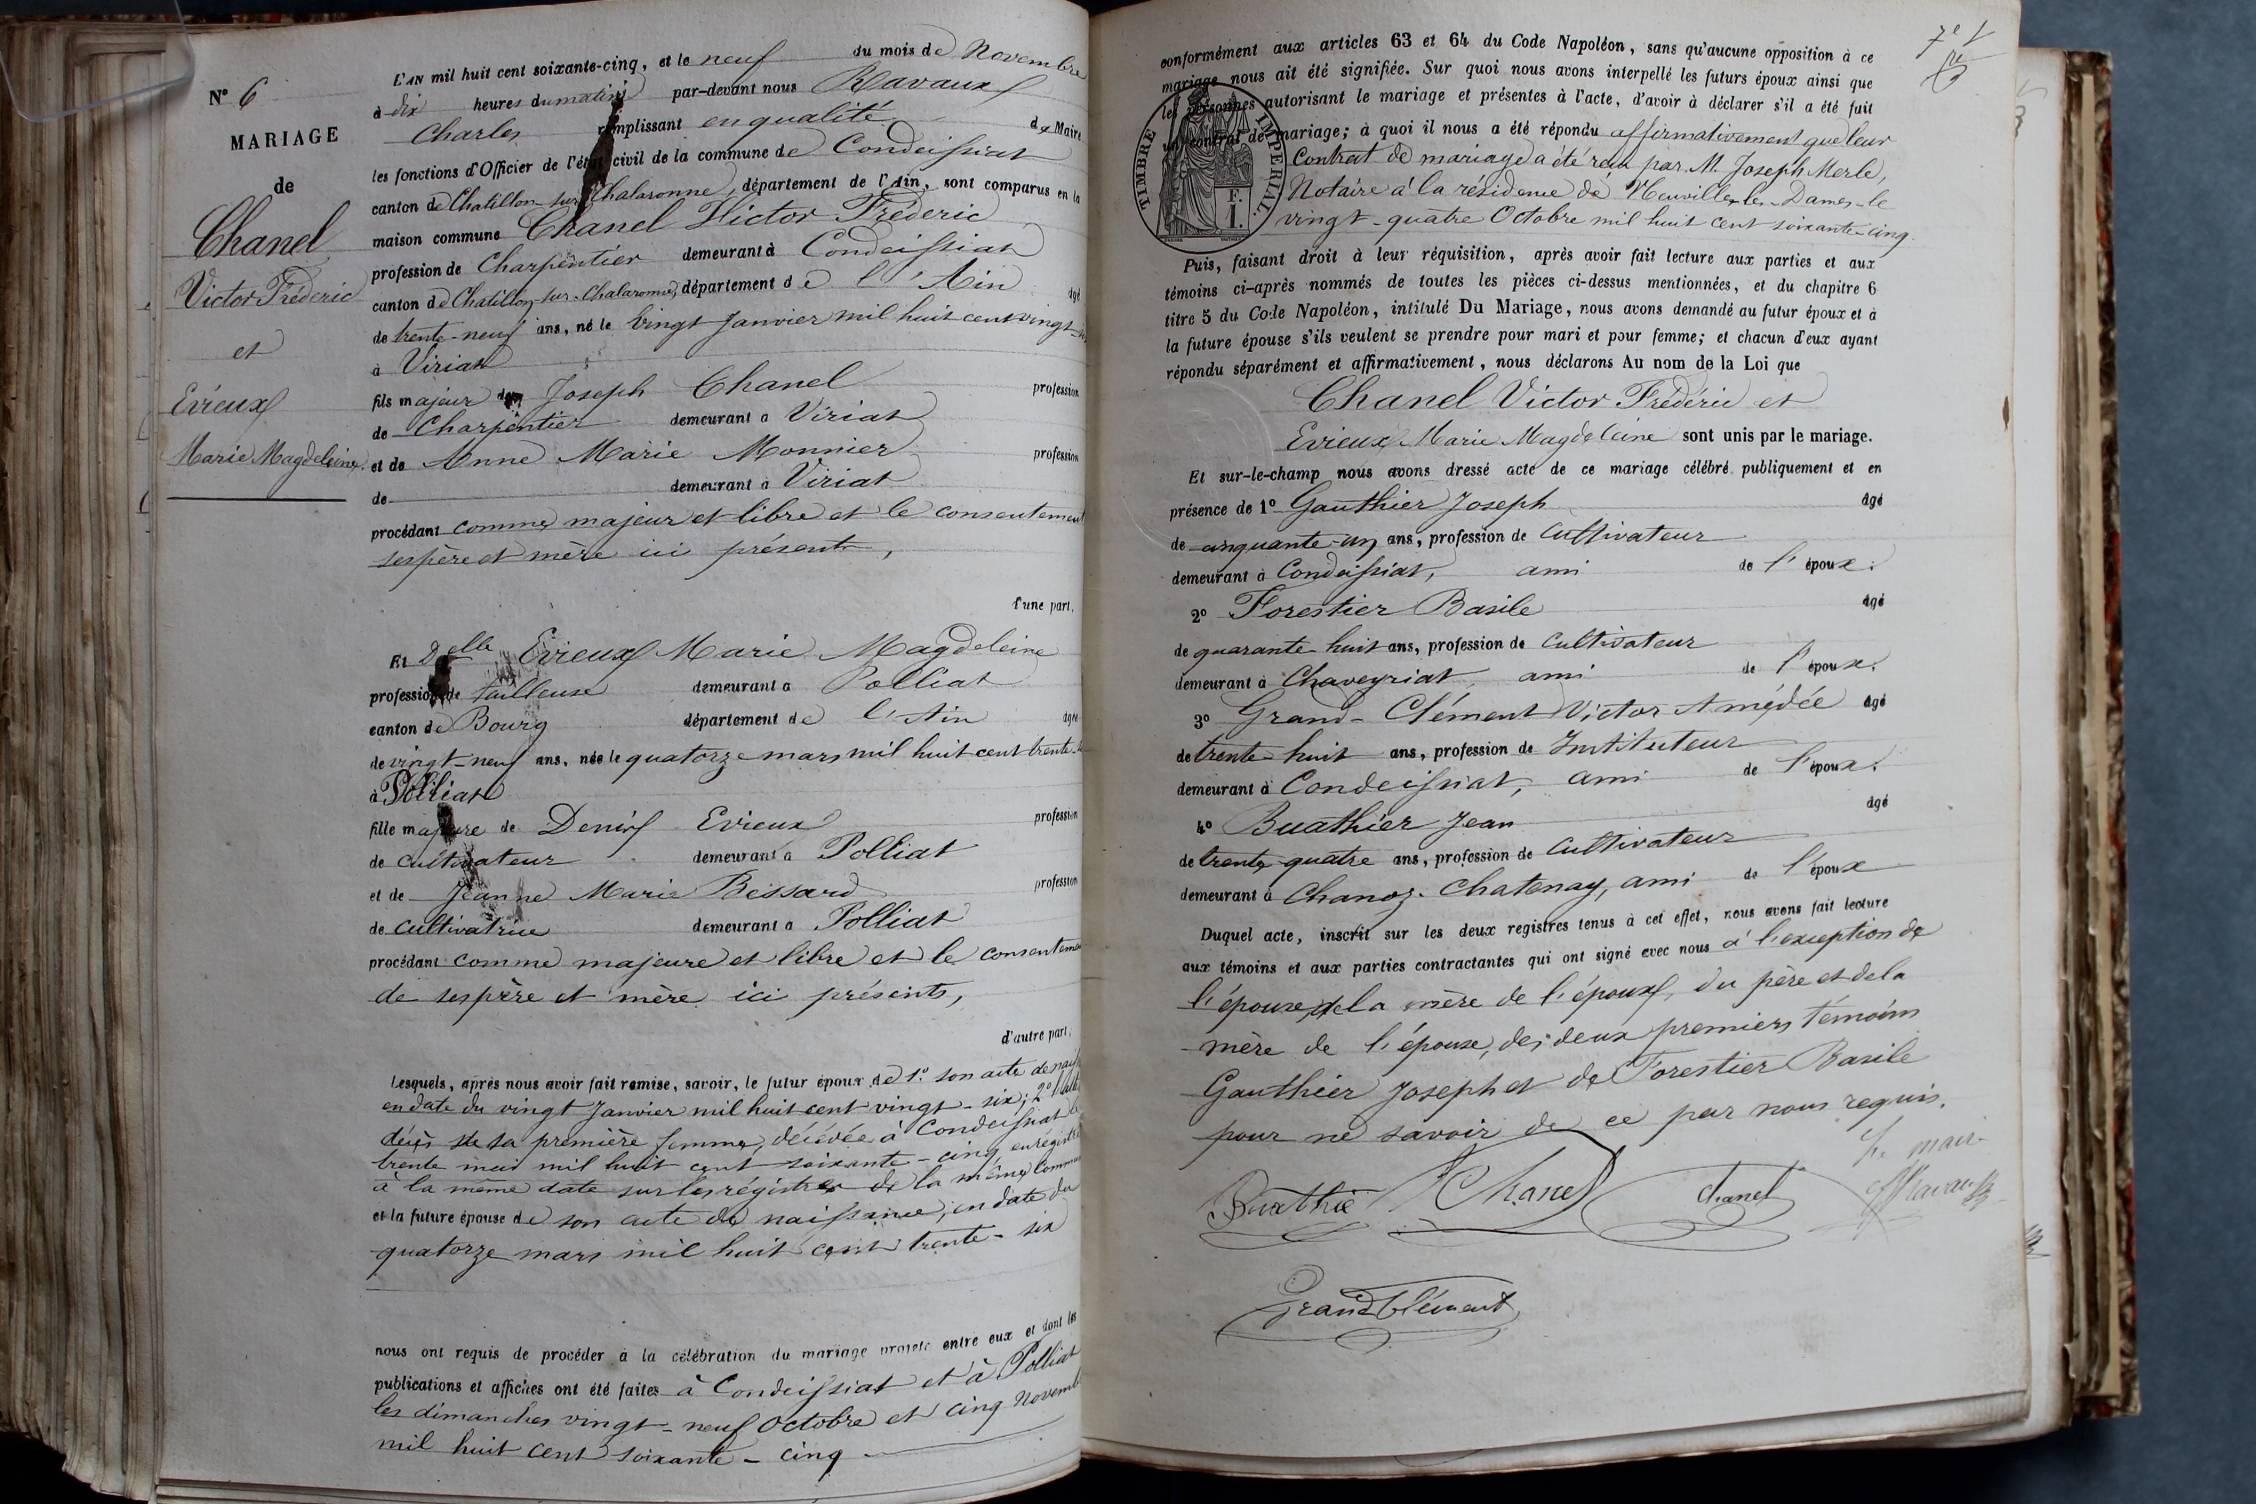 N° 6
MARIAGE
de
Chanel
Victor Fréderic
et
Evieux
Marie Magdeleine
L'AN mil huit cent soixante-cinq, et le neuf du mois de Novembre
à dix heures du matin par-devant nous Ravaux
Charles remplissant en qualité de Maire
les fonctions d'Officier de l'état civil de la commune de Condeissiat
canton de Chatillon-sur-Chalaronne, département de l'Ain, sont comparus en la
maison commune Chanel Victor Fréderic
profession de Charpentier demeurant à Condeissiat
canton de Chatillon-sur-Chalaronne, département de l'Ain âgé
de trente-neuf ans, né le vingt Janvier mil huit cent vingt-
à Viriat
fils majeur de Joseph Chanel profession
de Charpentier demeurant à Viriat
et de Anne Marie Monnier profession
de demeurant à Viriat
procédant comme majeur et libre et le consentement
ses père et mère ici présents,
d'une part.
Et Delle Evieux Marie Magdeleine
profession de tailleuse demeurant à Polliat
canton de Bourg département de l'Ain âgée
de vingt-neuf ans, née le quatorze mars mil huit cent trente-
à Polliat
fille majeure de Denis Evieux profession
de cultivateur demeurant à Polliat
et de Jeanne Marie Bessard profession
de cultivatrice demeurant à Polliat
procédant comme majeure et libre et le consentement
de ses père et mère ici présents,
d'autre part.
Lesquels, après nous avoir fait remise, savoir, le futur époux de 1° son acte de
en date du vingt Janvier mil huit cent vingt-six; 2°
décès de sa première femme, décédée à Condeissiat
trente mai mil huit cent soixante-cinq, enrégistré
à la même date sur les régistres de la même Commune
et la future épouse de son acte de naissance, en date du
quatorze mars mil huit cent trente-six
nous ont requis de procéder à la célébration du mariage projeté entre eux et dont les
publications et affiches ont été faites à Condeissiat et à Polliat
les dimanches vingt-neuf Octobre et cinq Novembre
mil huit cent soixante-cinq
conformément aux articles 63 et 64 du Code Napoléon, sans qu'aucune opposition à ce
mariage nous ait été signifiée. Sur quoi nous avons interpellé les futurs époux ainsi que
les personnes autorisant le mariage et présentes à l'acte, d'avoir à déclarer s'il a été fait
un contrat de mariage; à quoi il nous a été répondu affirmativement que leur
Contrat de mariage a été reçu par M. Joseph Merle,
Notaire à la résidence de Neuville-les-Dames le
vingt-quatre Octobre mil huit cent soixante-cinq.
TIMBRE IMPERIAL
F.
1.
Puis, faisant droit à leur réquisition, après avoir fait lecture aux parties et aux
témoins ci-après nommés de toutes les pièces ci-dessus mentionnées, et du chapitre 6
titre 5 du Code Napoléon, intitulé Du Mariage, nous avons demandé au futur époux et à
la future épouse s'ils veulent se prendre pour mari et pour femme; et chacun d'eux ayant
répondu séparément et affirmativement, nous déclarons Au nom de la Loi que
Chanel Victor Frédéric et
Evieux Marie Magdeleine sont unis par le mariage.
Et sur-le-champ nous avons dressé acte de ce mariage célébré publiquement et en
présence de 1° Gauthier Joseph âgé
de cinquante-un ans, profession de Cultivateur
demeurant à Condeissiat, ami de l'époux.
2° Forestier Basile âgé
de quarante huit ans, profession de Cultivateur
demeurant à Chaveyriat, ami de l'époux.
3° Grand-Clément Victor Amédée âgé
de trente-huit ans, profession de Instituteur
demeurant à Condeissiat, ami de l'époux.
4° Buathier Jean âgé
de trente quatre ans, profession de Cultivateur
demeurant à Chanoz-Chatenay, ami de l'époux
Duquel acte, inscrit sur les deux registres tenus à cet effet, nous avons fait lecture
aux témoins et aux parties contractantes qui ont signé avec nous à l'exception de
l'épouse, de la mère de l'époux, du père et de la
mère de l'épouse, des deux premiers témoins
Gauthier Joseph et de Forestier Basile
pour ne savoir de ce par nous requis.
Le maire
Buathié Chanel Chanel Ravaux
GrandClément